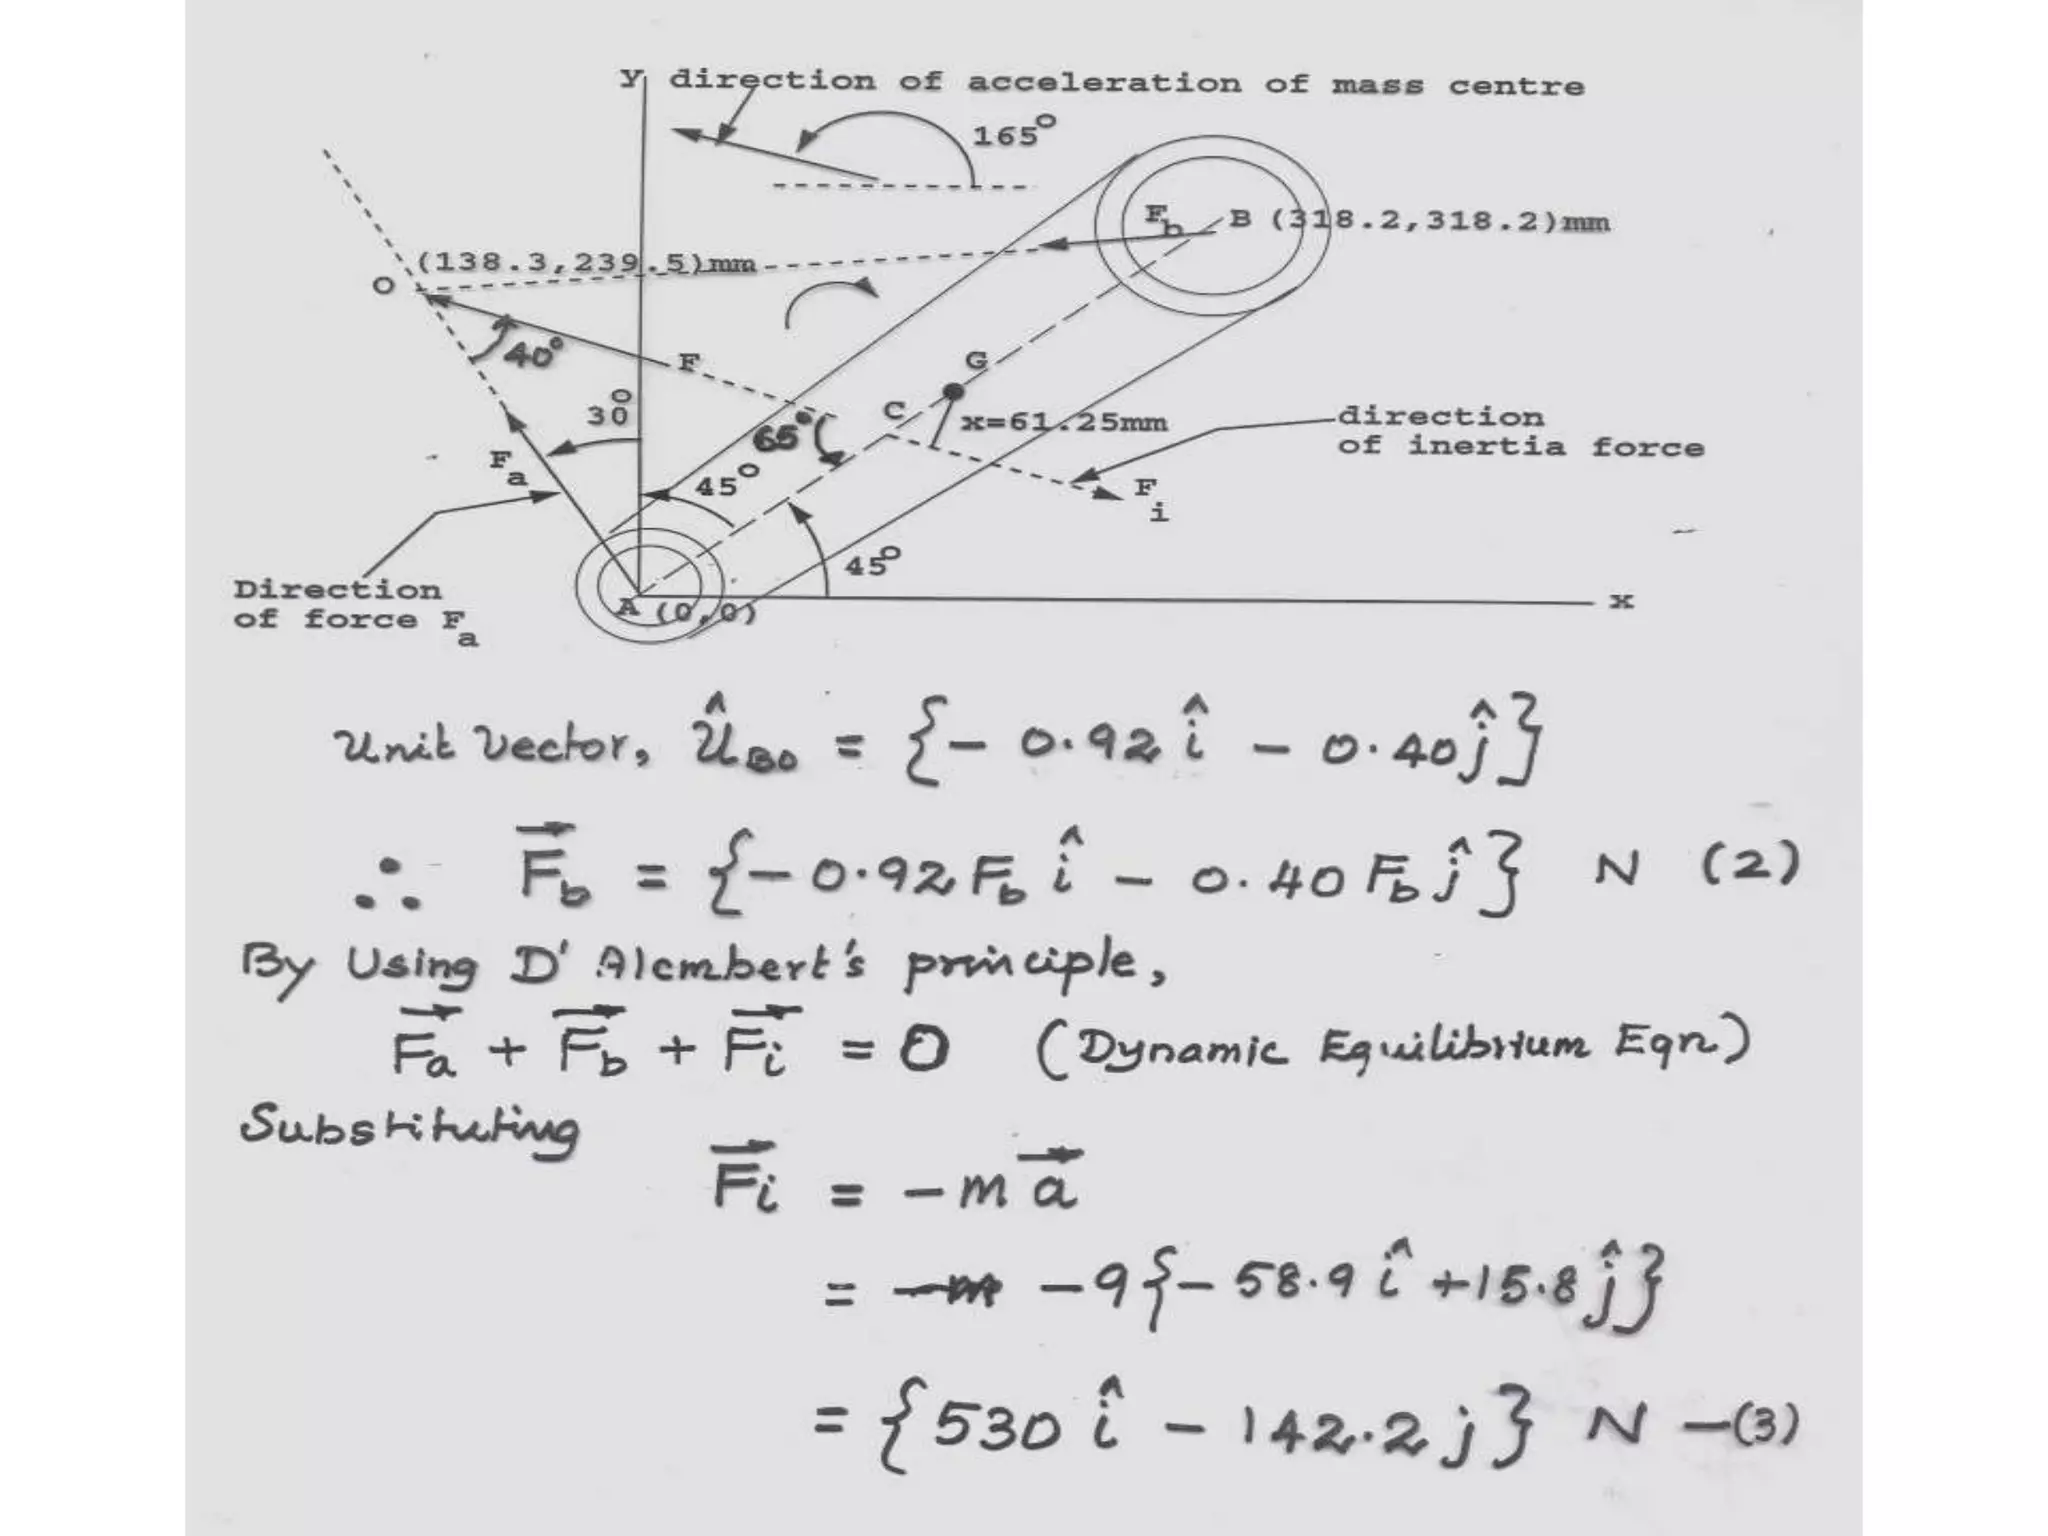 y direction of acceleration of mass centre
165°
F_b
B (318.2,318.2)mm
(138.3,239.5)mm
O
40°
F
G
30°
C
65°
x=61.25mm
direction
of inertia force
F_a
45°
F_i
45°
Direction
of force F_a
A (0,0)
x
Unit Vector, û_BO = {- 0.92 î - 0.40 ĵ}
∴ F⃗_b = {- 0.92 F_b î - 0.40 F_b ĵ} N (2)
By Using D'Alembert's principle,
F⃗_a + F⃗_b + F⃗_i = 0 (Dynamic Equilibrium Eqn)
Substituting
F⃗_i = - m a⃗
= -m -9{- 58.9 î + 15.8 ĵ}
= {530 î - 142.2 j} N -(3)